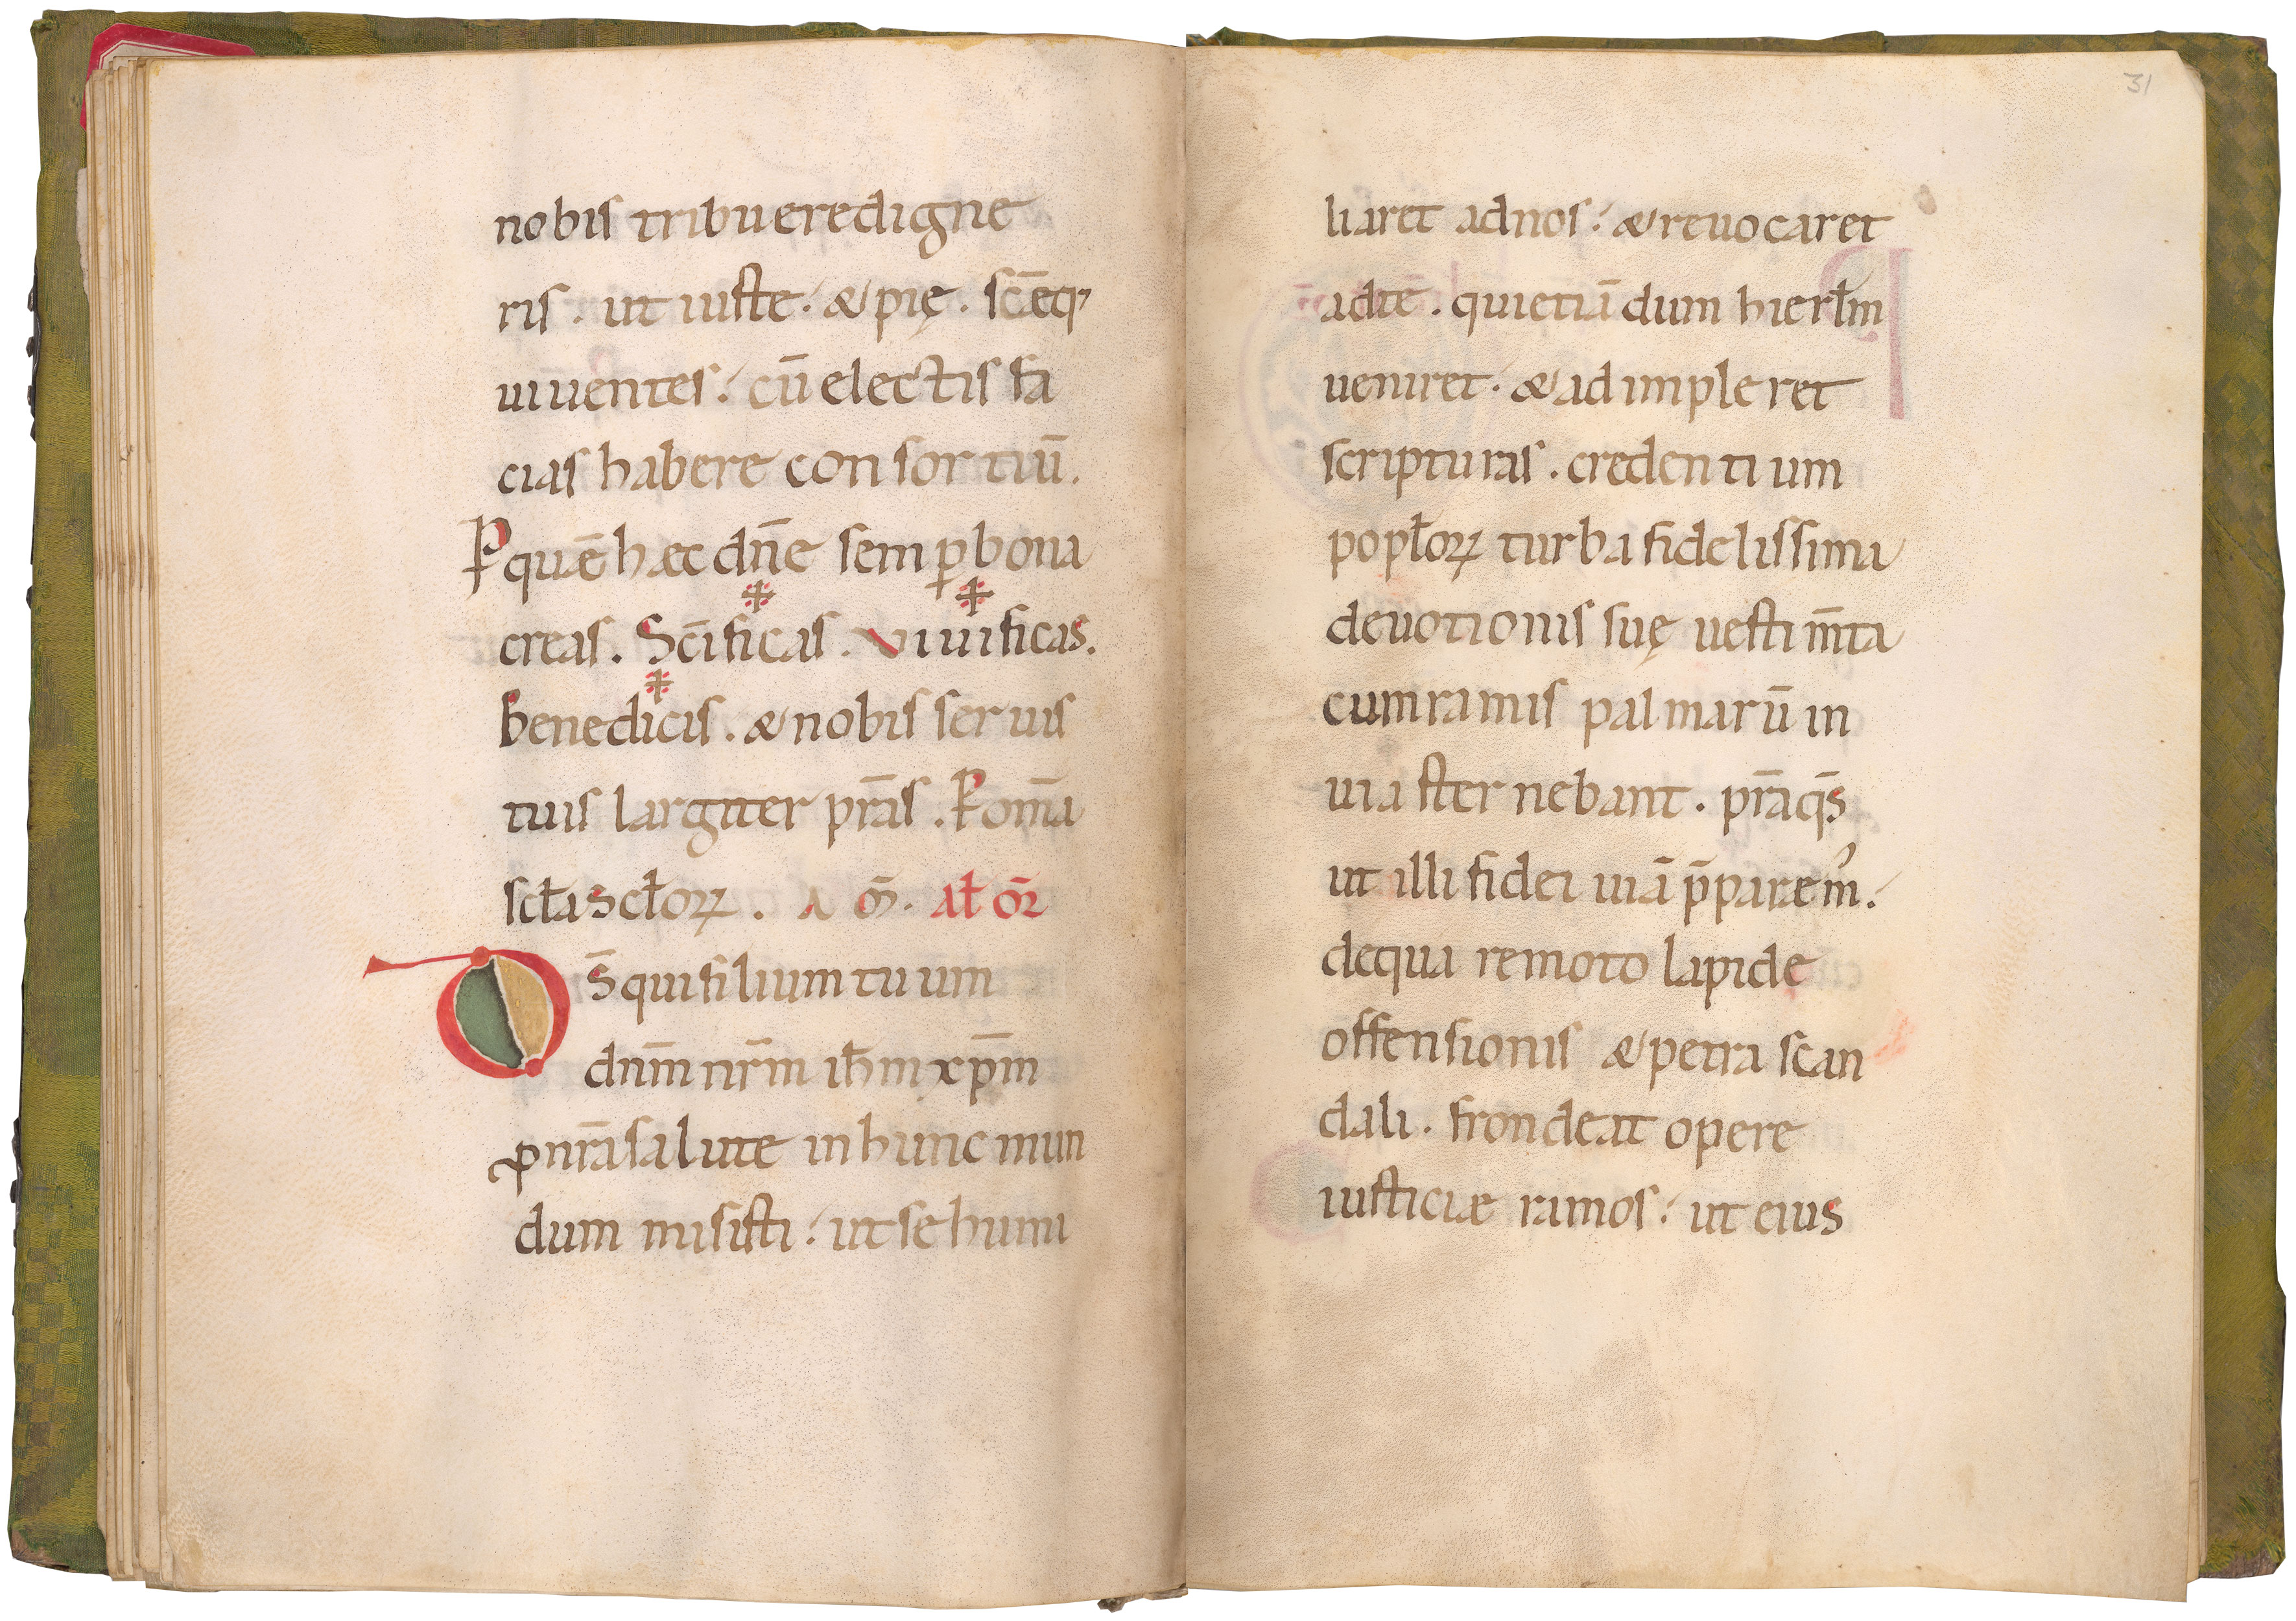 nobis tribuere digne
ris . ut iuste . & pię . sc̄eq;
uiuentes . cū electis fa
cias habere consortiū .
P quē hæc dn̄e semp̱ bona
creas . Sc̄ificas . viuificas .
benedicis . & nobis seruis
tuis largiter p̄ras . P om̄a
scl̄a scl̄oꝝ . A m̄ . Al̄ or̄
D s̄ qui filium tuum
dn̄m nr̄m ih̄m xp̄m
ꝓ nr̄a salute in hunc mun
dum misisti . ut se humi
31
liaret ad nos . & reuocaret
ad te . qui etiā dum hierl̄m
ueniret . & adimpleret
scripturas . credentium
popl̄oꝝ turba fidelissima
deuotionis suę uestim̄ta
cum ramis palmarū in
uia sternebant . p̄ra qs̄
ut illi fidei uiā p̄parem᾽ .
de qua remoto lapide
offensionis & petra scan
dali . frondeat opere
iusticiæ ramos . ut eius